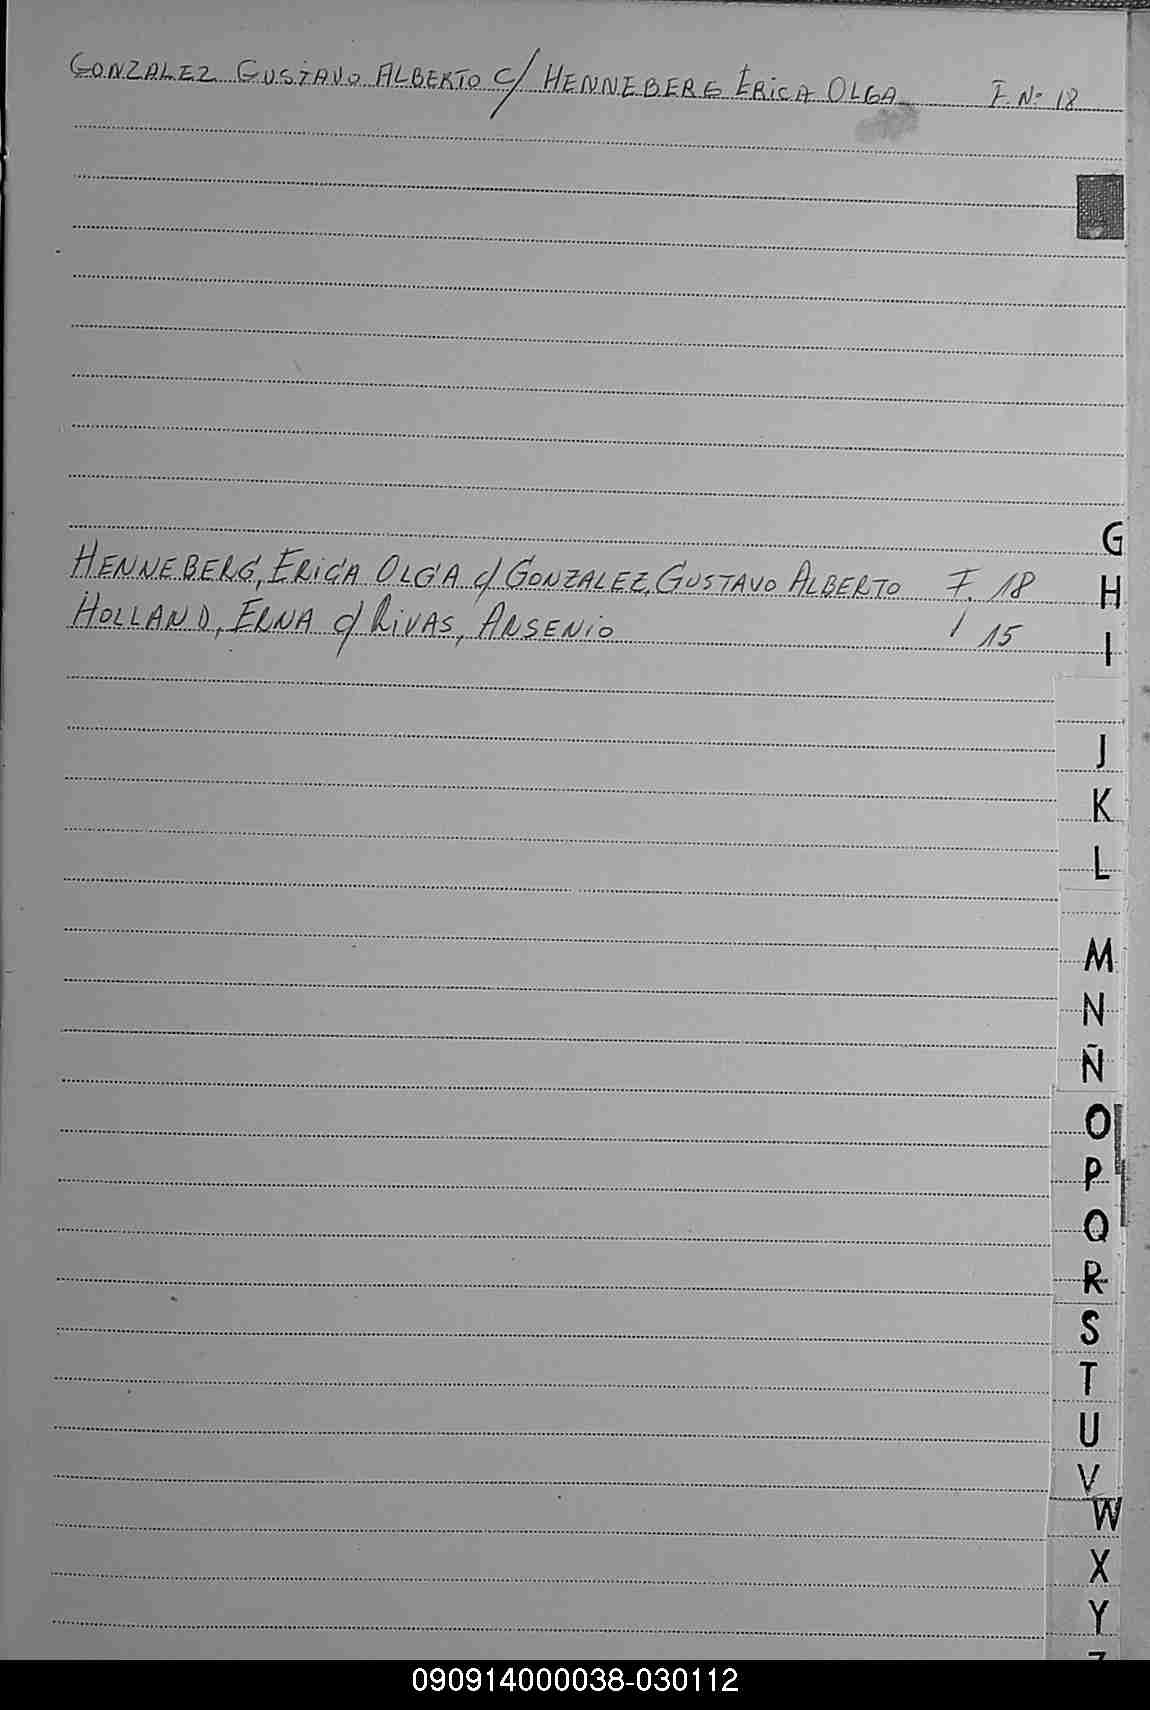 GONZALEZ GUSTAVO ALBERTO C/ HENNEBERG ERICA OLGA F. Nº 18
G
HENNEBERG, ERICA OLGA c/ GONZALEZ, GUSTAVO ALBERTO F. 18
H
HOLLAND, ERNA c/ RIVAS, ARSENIO / 15
I
J
K
L
M
N
Ñ
O
P
Q
R
S
T
U
V
W
X
Y
090914000038-030112